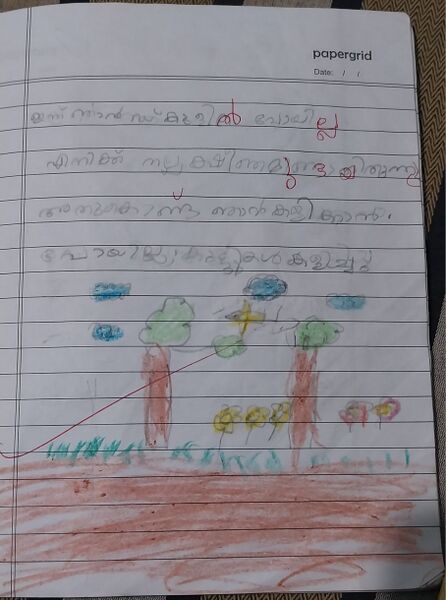 papergrid
Date: / /
ഇന്ന് ഞാൻ സ്കൂളിൽ പോയില്ല
എനിക്ക് നല്ല ക്ഷീണമുണ്ടായിരുന്നു
അതുകൊണ്ട് ഞാൻ കളിക്കാൻ.
പോയില്ല. കുട്ടികൾ കളിച്ചു